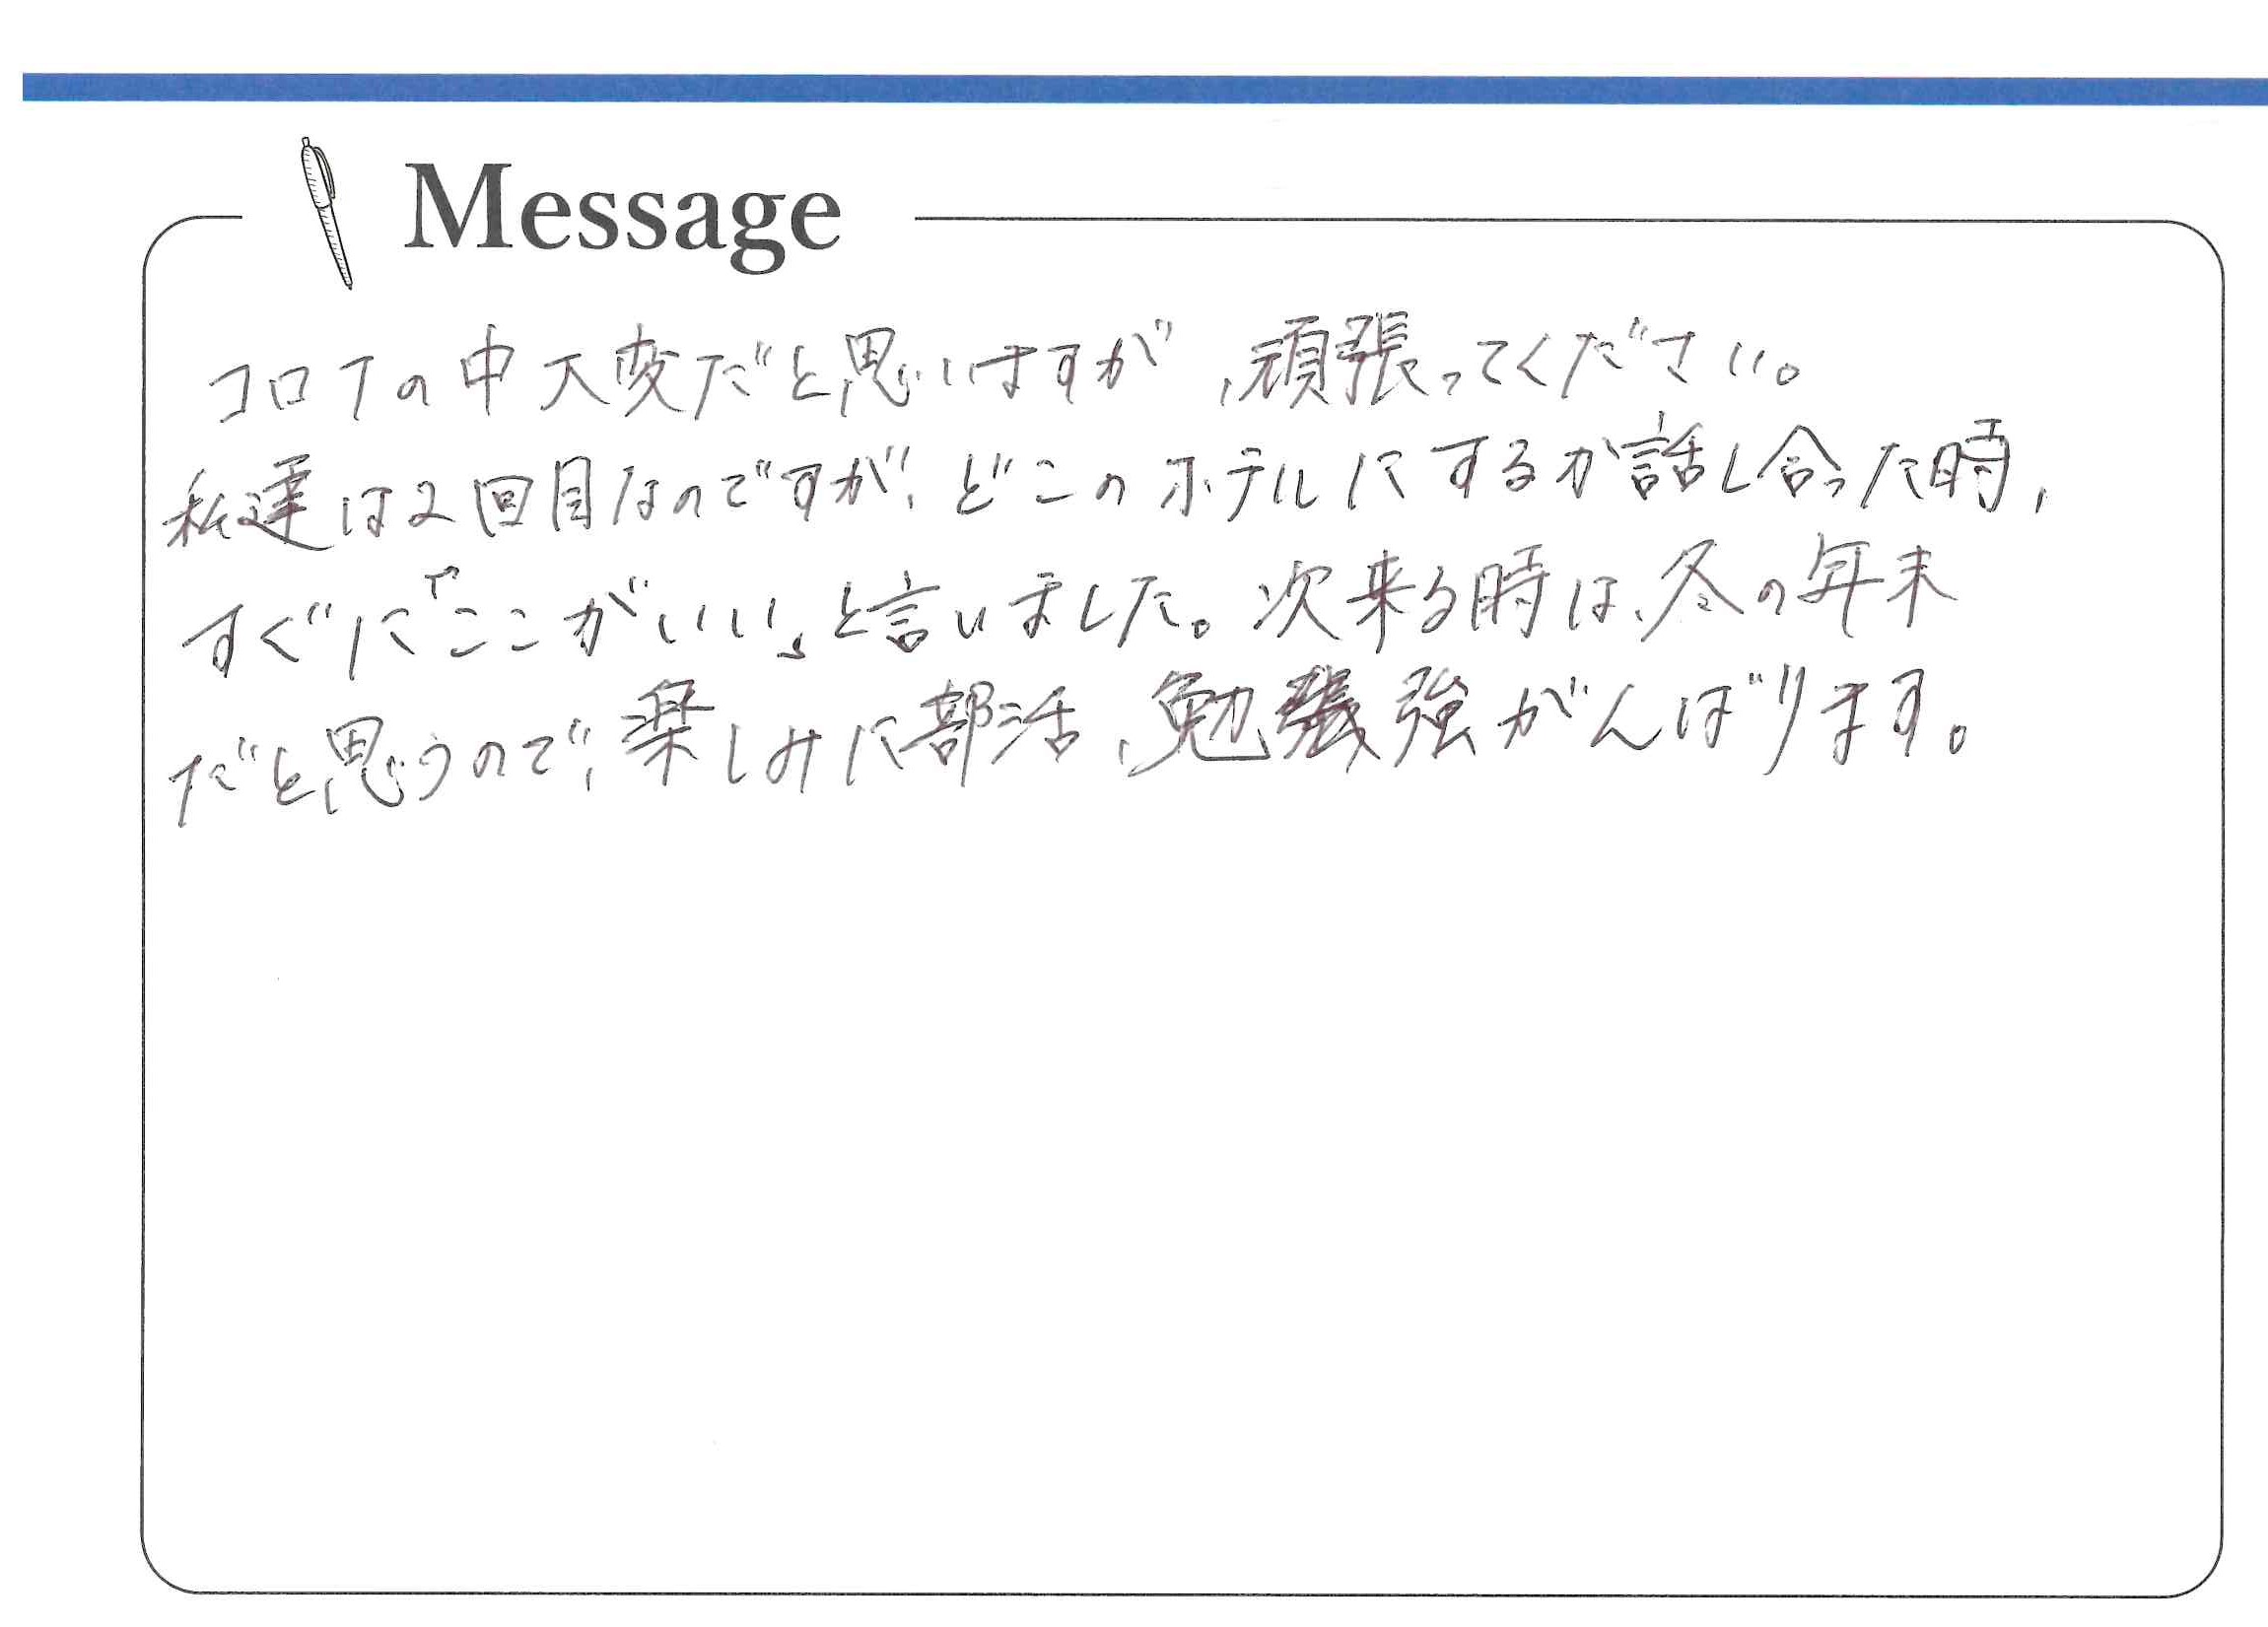 Message
コロナの中大変だと思いますが、頑張ってください。
私達は2回目なのですが、どこのホテルにするか話し合った時、
すぐに「ここがいい」と言いました。次来る時は、冬の年末
だと思うので、楽しみに部活、勉強がんばります。